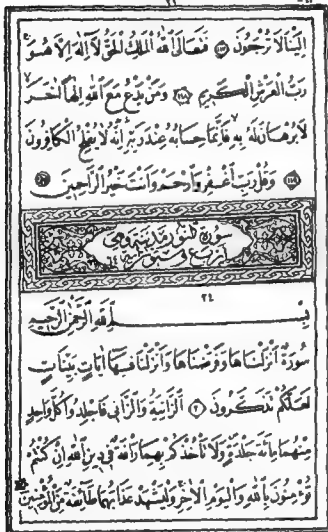 اِلَيْنَا لَا تُرْجَعُونَ ﴿١١٥﴾ فَتَعَالَى اللهُ الْمَلِكُ الْحَقُّ لَا اِلٰهَ اِلَّا هُوَ
رَبُّ الْعَرْشِ الْكَرِيمِ ﴿١١٦﴾ وَمَنْ يَدْعُ مَعَ اللهِ اِلٰهًا اٰخَرَ
لَا بُرْهَانَ لَهُ بِهِ فَاِنَّمَا حِسَابُهُ عِنْدَ رَبِّهِ اِنَّهُ لَا يُفْلِحُ الْكَافِرُونَ
﴿١١٧﴾ وَقُلْ رَبِّ اغْفِرْ وَارْحَمْ وَاَنْتَ خَيْرُ الرَّاحِمِينَ
سورة النور مدنية وهي
اربع وستون
٢٤
بِسْمِ اللهِ الرَّحْمٰنِ الرَّحِيمِ
سُورَةٌ اَنْزَلْنَاهَا وَفَرَضْنَاهَا وَاَنْزَلْنَا فِيهَا اٰيَاتٍ بَيِّنَاتٍ
لَعَلَّكُمْ تَذَكَّرُونَ ﴿١﴾ اَلزَّانِيَةُ وَالزَّانِي فَاجْلِدُوا كُلَّ وَاحِدٍ
مِنْهُمَا مِائَةَ جَلْدَةٍ وَلَا تَأْخُذْكُمْ بِهِمَا رَأْفَةٌ فِي دِينِ اللهِ اِنْ كُنْتُمْ
تُؤْمِنُونَ بِاللهِ وَالْيَوْمِ الْاٰخِرِ وَلْيَشْهَدْ عَذَابَهُمَا طَائِفَةٌ مِنَ الْمُؤْمِنِينَ